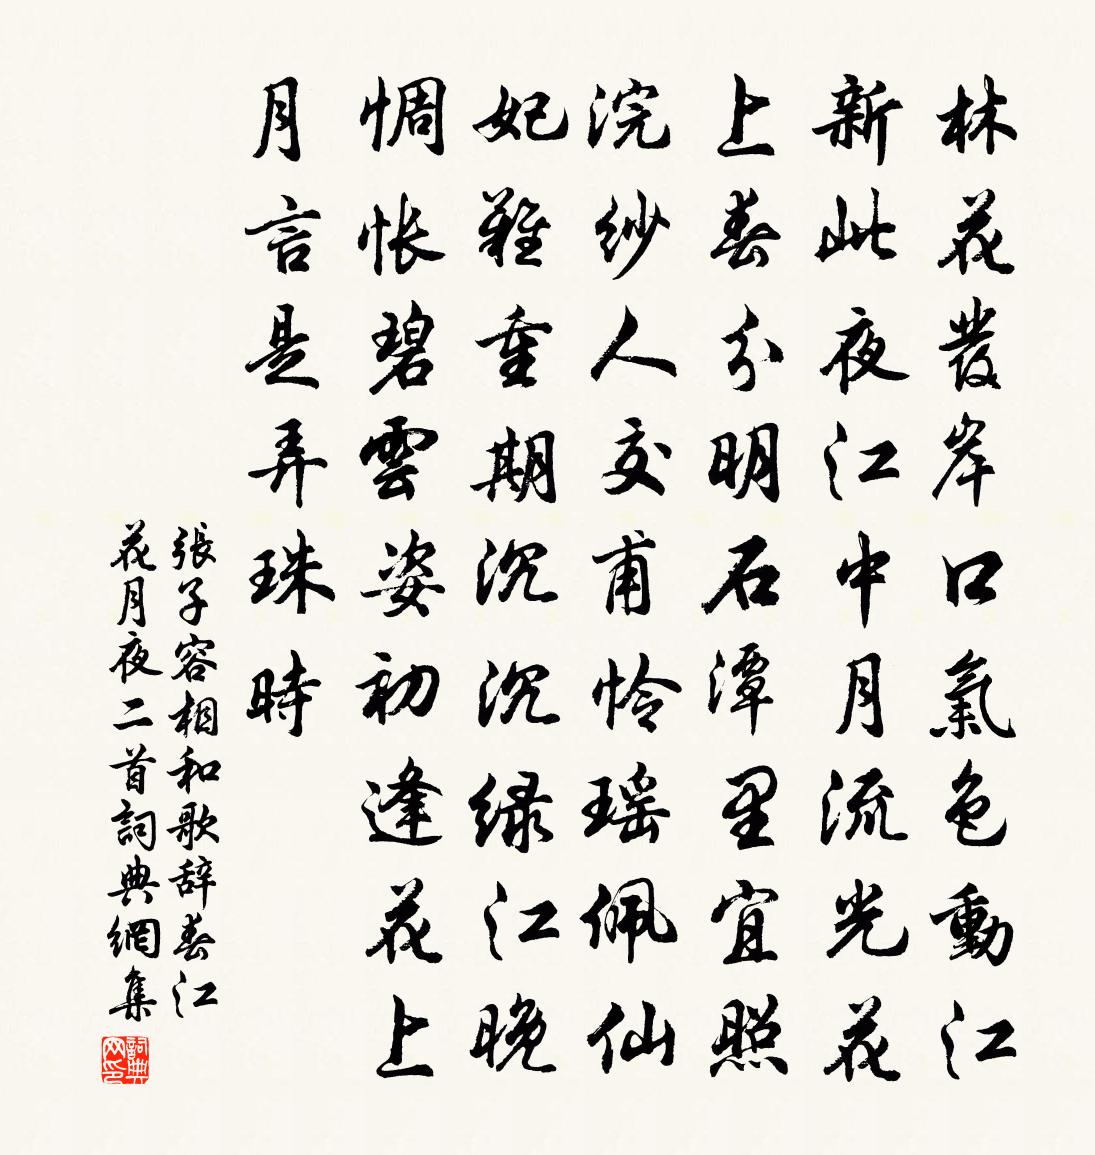 林花發岸口氣色動江
新此夜江中月流光花
上春分明石潭里宜照
浣紗人交甫怜瑶佩仙
妃難重期沉沉緑江晚
惆怅碧雲姿初逢花上
月言是弄珠時
張子容相和歌辞春江
花月夜二首詞典網集
詞典网印